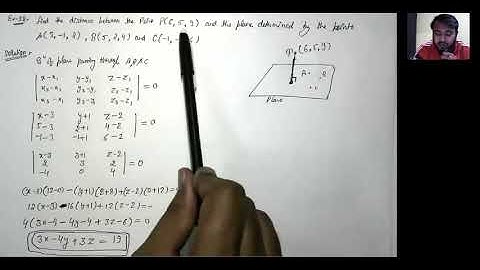 Ex-38:- Find the distance between the Point P(6, 5, 9) and the plane determined by the points
A(3, -1, 2), B(5, 2, 4) and C(-1,
Solution:-
Eⁿ of plane passing through A, B & C
| x-x₁ y-y₁ z-z₁ |
| x₂-x₁ y₂-y₁ z₂-z₁ | = 0
| x₃-x₁ y₃-y₁ z₃-z₁ |
| x-3 y+1 z-2 |
| 5-3 2+1 4-2 | = 0
| -1-3 -1+1 6-2 |
| x-3 y+1 z-2 |
| 2 3 2 | = 0
| -4 0 4 |
(x-3)(12-0) - (y+1)(8+8) + (z-2)(0+12) =
12(x-3) - 16(y+1) + 12(z-2) =
4(3x-4y-4+3z-6) = 0
3x-4y+3z = 19
P
(6, 5, 9)
A
B
Plane